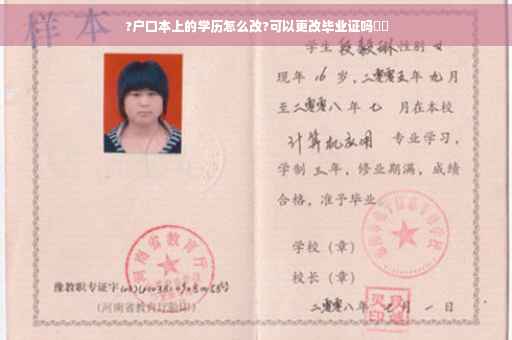 ?户口本上的学历怎么改?可以更改毕业证吗
样本
学生 段毅琳 性别 女
现年 16 岁，二零零五年 九 月
至二零零八年 七 月在本校
计算机应用 专业学习，
学制 三 年，修业期满，成绩
合格，准予毕业
学校（章）
校长（章）
二零零八年 月 一 日
河南省教育厅
豫教职专证字
（河南省教育厅验印）